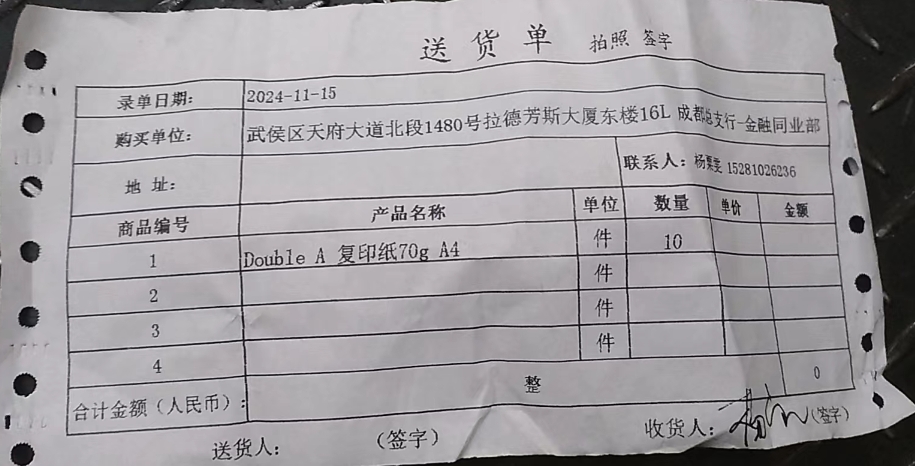 送货单 拍照 签字
录单日期： 2024-11-15
购买单位： 武侯区天府大道北段1480号拉德芳斯大厦东楼16L 成都总支行-金融同业部
地 址： 联系人：杨栗雯 15281026236
商品编号 产品名称 单位 数量 单价 金额
1 Double A 复印纸70g A4 件 10
2 件
3 件
4 件
合计金额（人民币）： 整 0
送货人： （签字） 收货人： （签字）